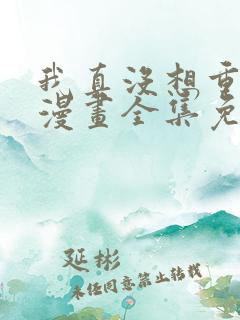 我真没想重
漫畫全集免
延彬
未经同意禁止转载